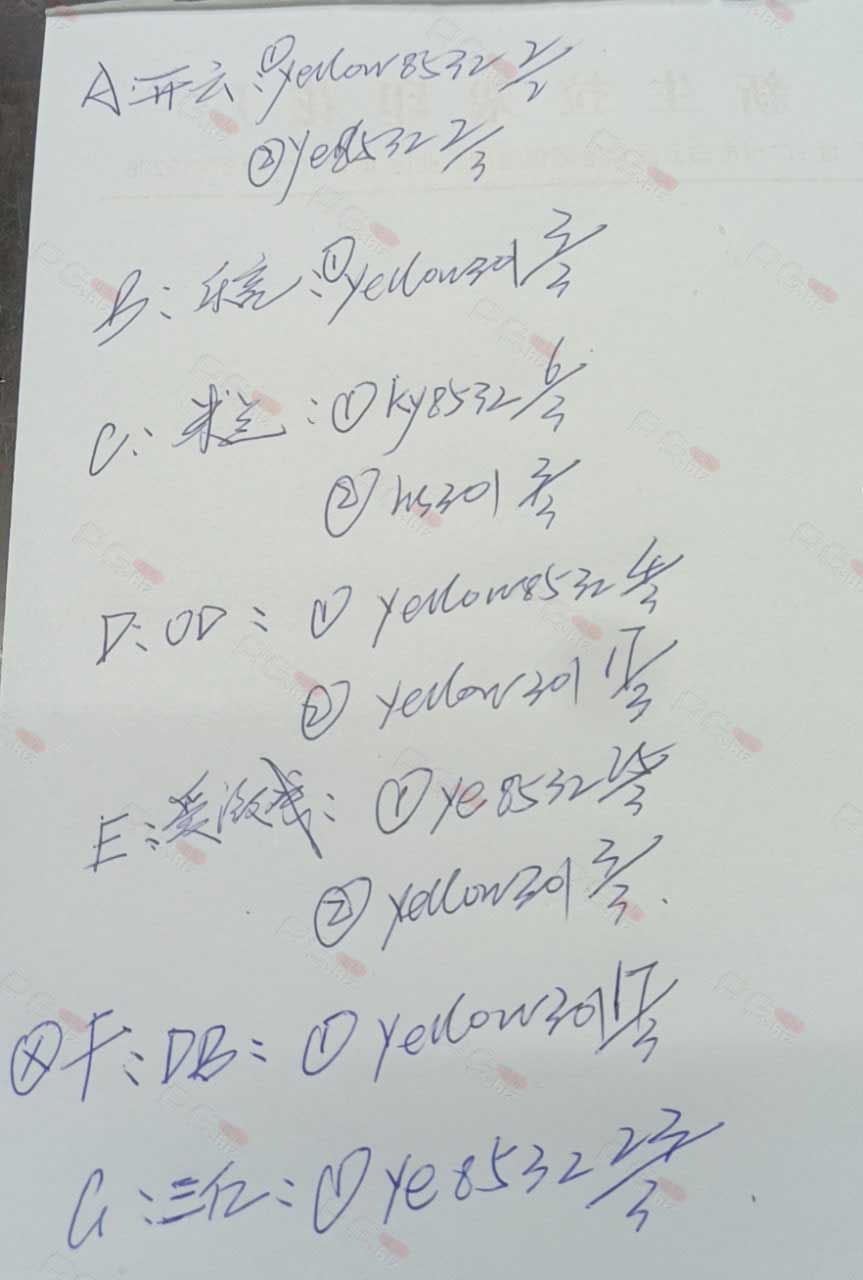 A:开云:①yellow8532 2/2
②ye8532 2/3
B:乐竞:①yellow301 3/3
C:米兰:①ky8532 6/3
②hs301 3/3
D:OD:①yellow8532 4/3
②yellow301 17/3
E:爱游戏:①ye8532 25/3
②yellow301 3/3.
ⓧF:DB:①yellow301 17/3
G:三亿:①ye8532 23/3